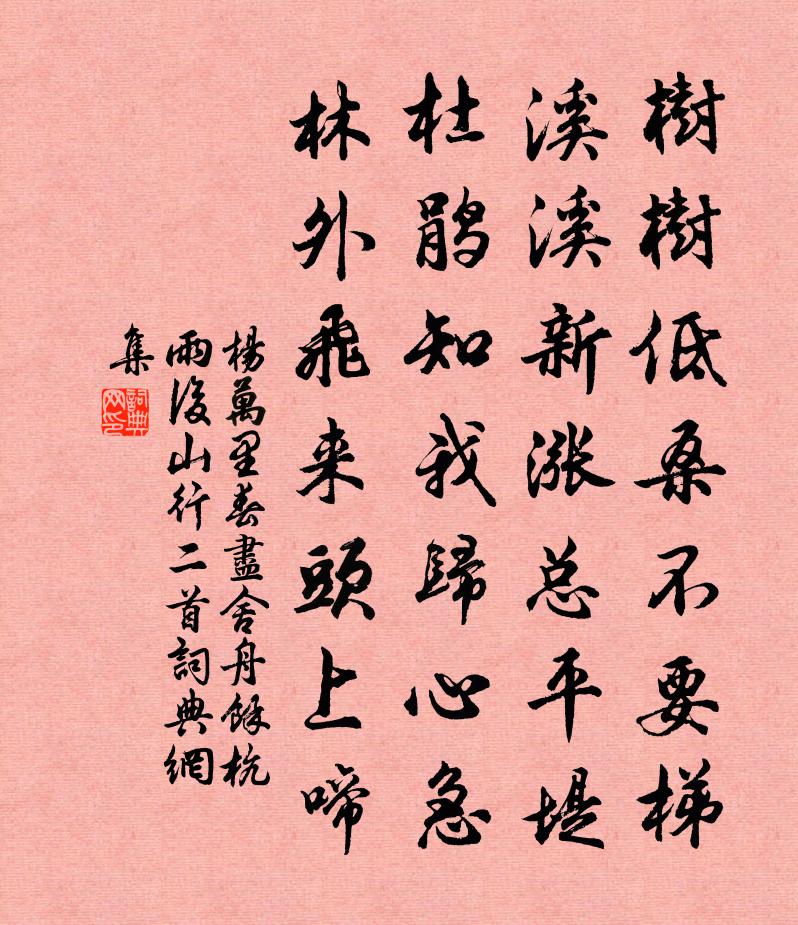 樹樹低桑不要梯
溪溪新漲总平堤
杜鹃知我歸心急
林外飛来頭上啼
楊萬里春盡舍舟餘杭
雨後山行二首詞典網
集
詞典網印